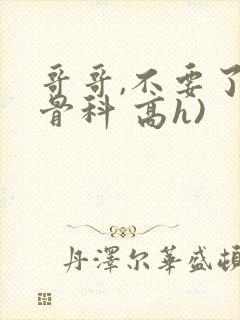 哥哥,不要了
骨科 高h)
丹澤尔華盛頓